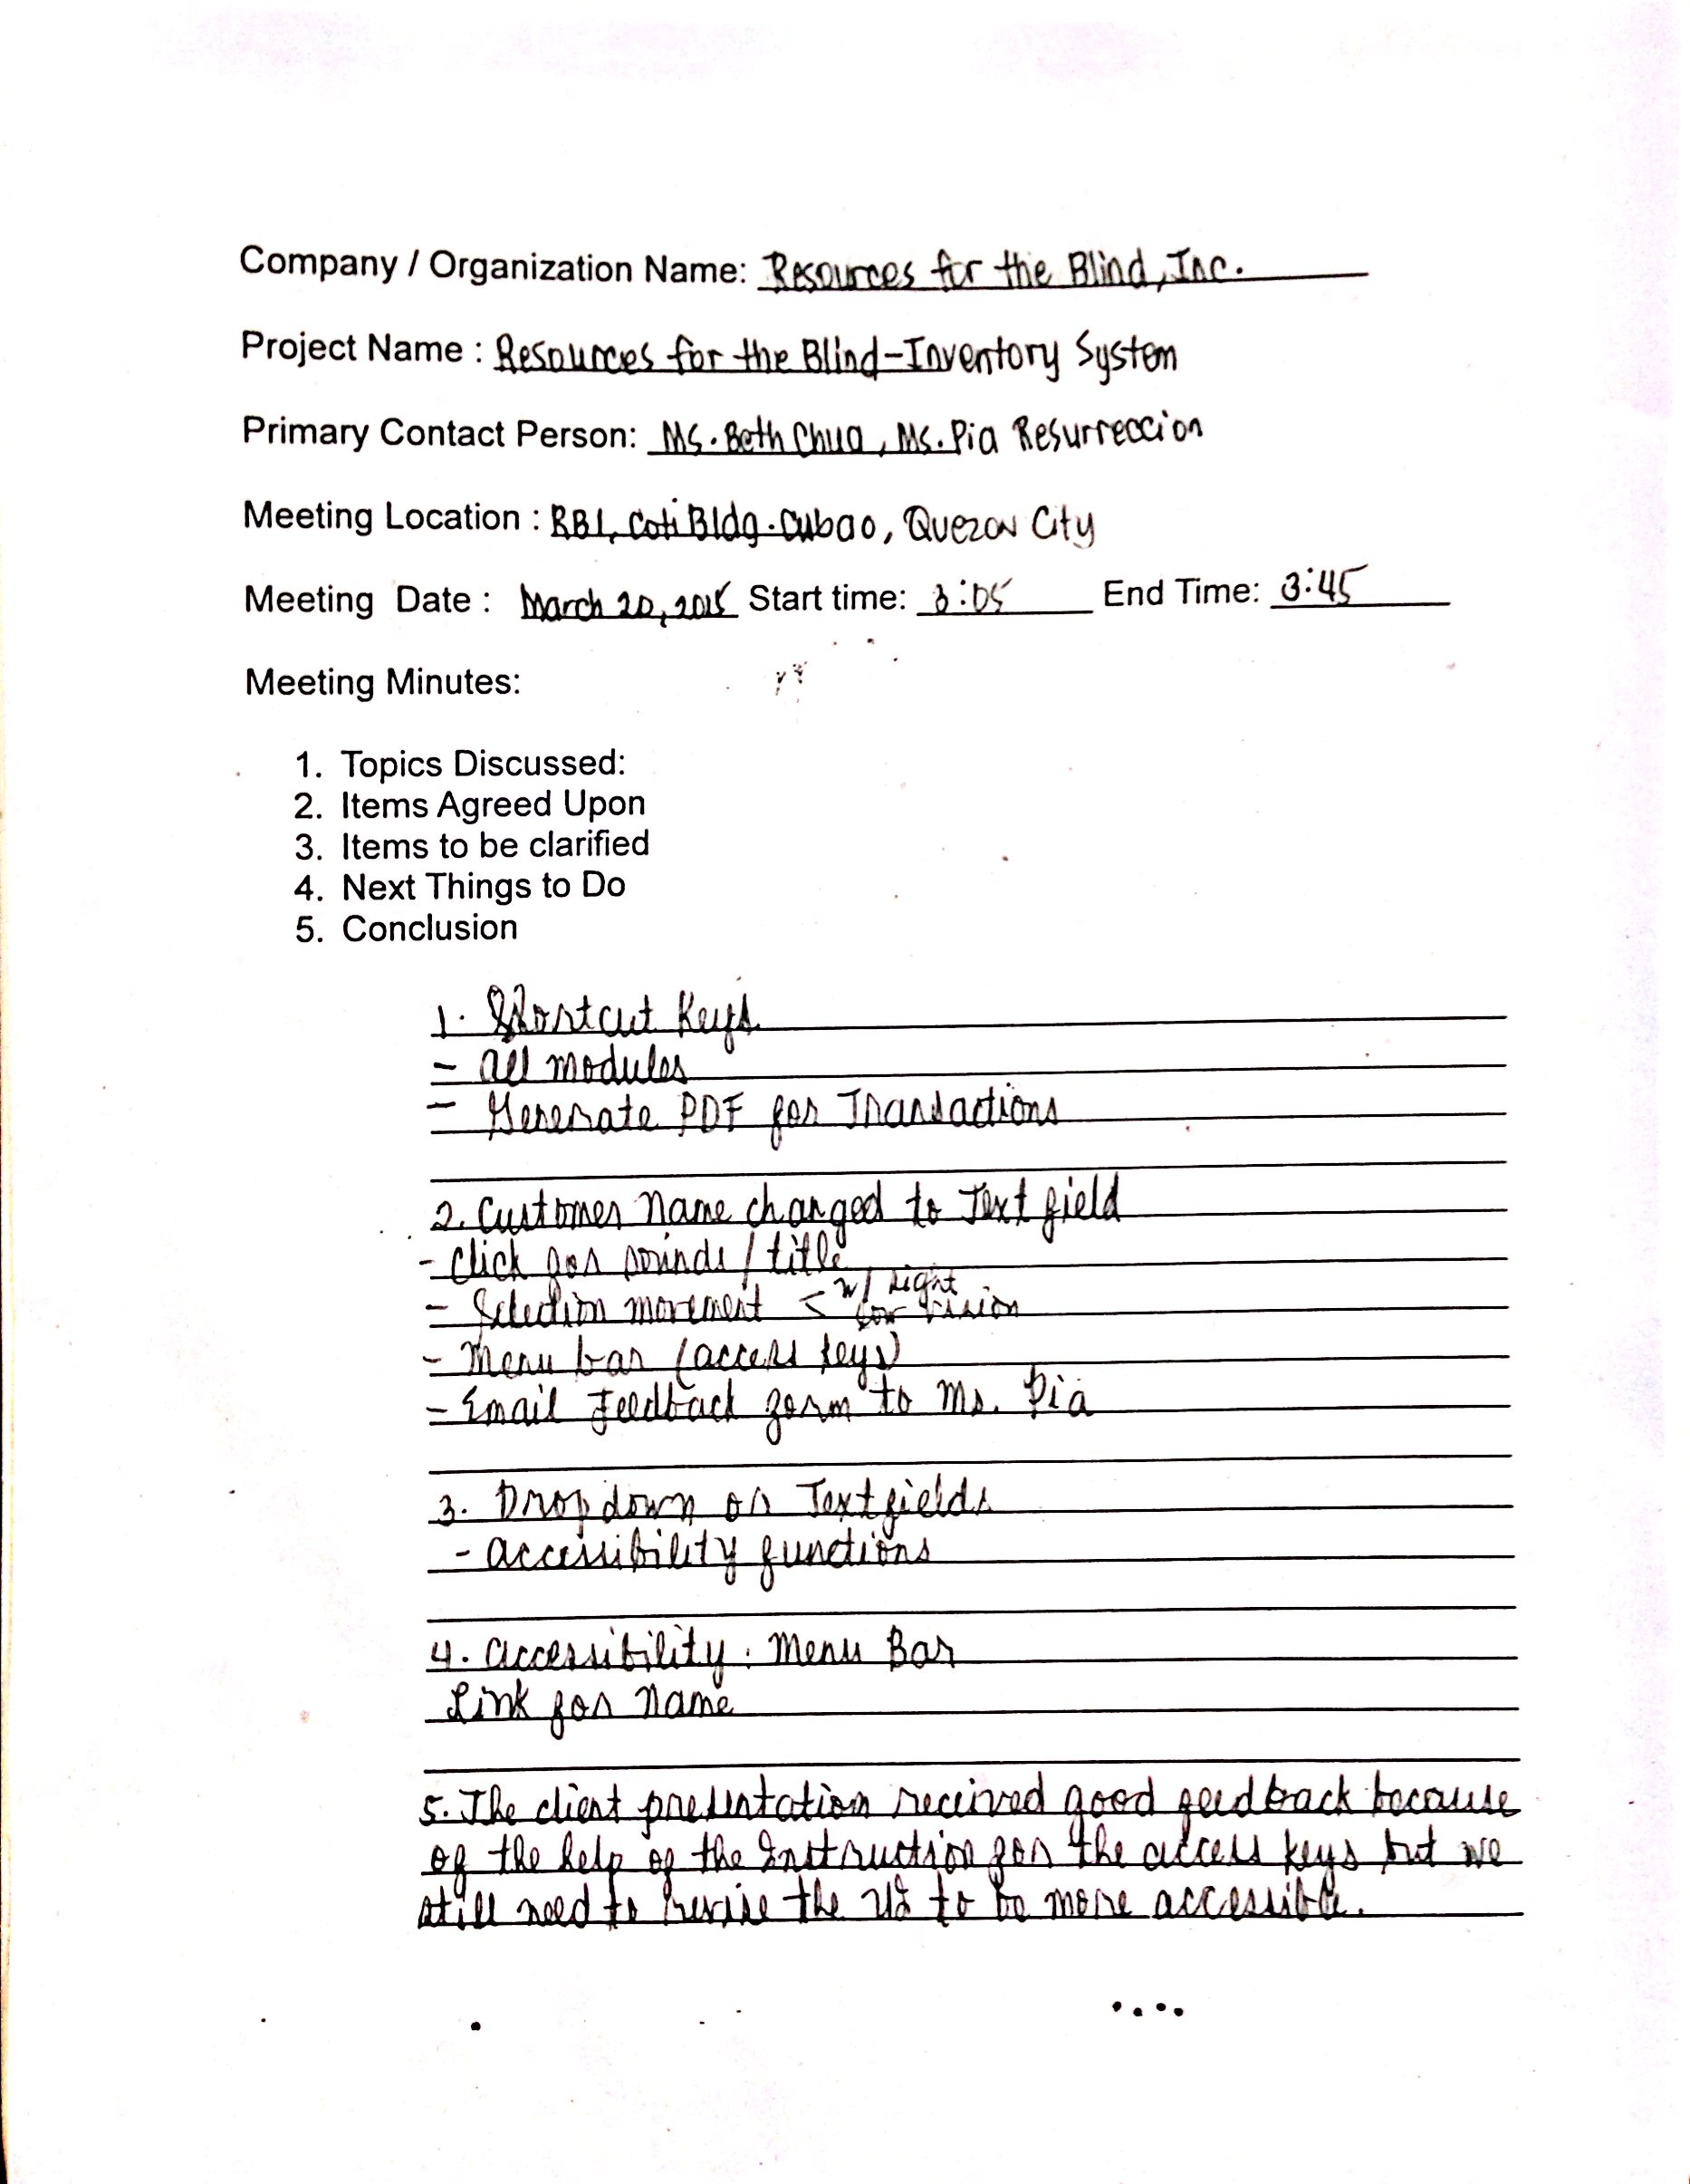 Company / Organization Name: Resources for the Blind, Inc.
Project Name : Resources for the Blind-Inventory System
Primary Contact Person: Ms. Beth Chua, Ms. Pia Resurreccion
Meeting Location : RBI, Coti Bldg. Cubao, Quezon City
Meeting Date : March 20, 2015 Start time: 3:05 End Time: 3:45
Meeting Minutes:
1. Topics Discussed:
2. Items Agreed Upon
3. Items to be clarified
4. Next Things to Do
5. Conclusion
1. Shortcut Keys
- All modules
- Generate PDF for Transactions
2. Customer Name changed to Text field
- Click for sounds / title
- Selection movement < w/ sight
low vision
- Menu bar (access keys)
- Email Feedback form to Ms. Pia
3. Drop down or Textfields
- Accessibility functions
4. Accessibility. Menu Bar
Link for Name
5. The client presentation received good feedback because
of the help of the Instruction for the access keys but we
still need to revise the UI to be more accessible.